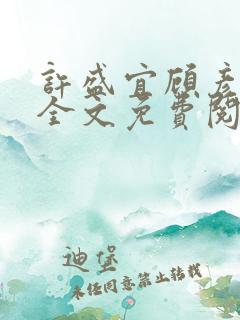 許盛宜顾彦
全文免費閱
迪堡
未经同意禁止转载